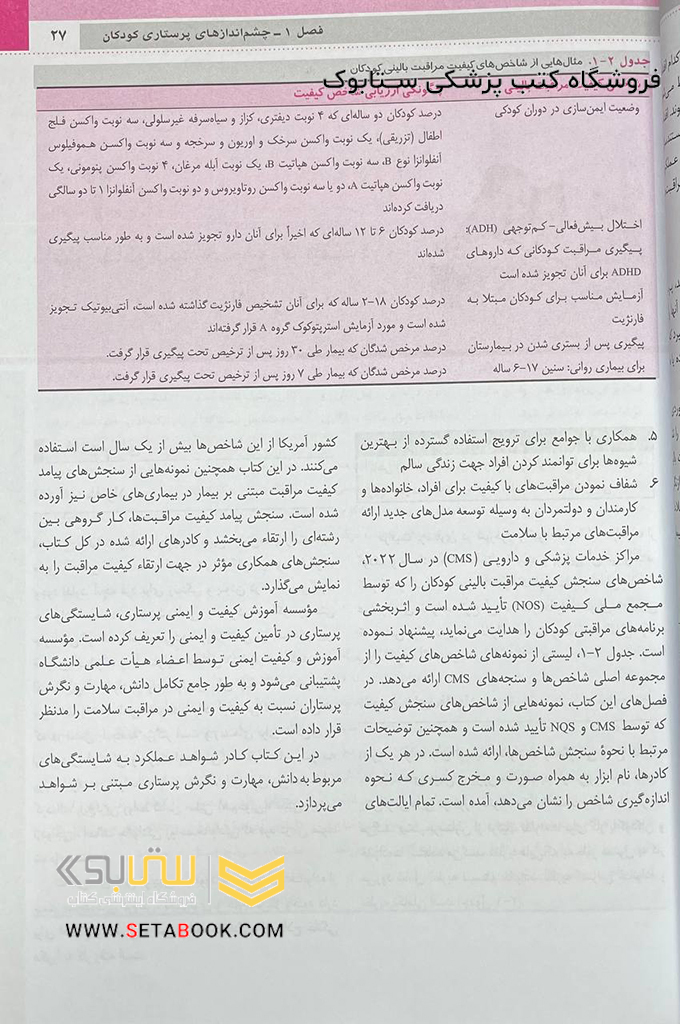 فصل ۱ ــ چشم‌اندازهای پرستاری کودکان ۲۷
جدول ۲-۱. مثال‌هایی از شاخص‌های کیفیت مراقبت بالینی کودکان
فروشگاه کتب پزشکی ستابوک
شاخص کیفیت
وضعیت ایمن‌سازی در دوران کودکی
درصد کودکان دو ساله‌ای که ۴ نوبت دیفتری، کزاز و سیاه‌سرفه غیرسلولی، سه نوبت واکسن فلج
اطفال (تزریقی)، یک نوبت واکسن سرخک و اوریون و سرخجه و سه نوبت واکسن هموفیلوس
آنفلوانزا نوع B، سه نوبت واکسن هپاتیت B، یک نوبت آبله مرغان، ۴ نوبت واکسن پنومونی، یک
نوبت واکسن هپاتیت A، دو یا سه نوبت واکسن روتاویروس و دو نوبت واکسن آنفلوانزا ۱ تا دو سالگی
دریافت کرده‌اند
اختلال بیش‌فعالی- کم‌توجهی (ADH):
پیگیری مراقبت کودکانی که داروهای
ADHD برای آنان تجویز شده است
درصد کودکان ۶ تا ۱۲ ساله‌ای که اخیراً برای آنان دارو تجویز شده است و به طور مناسب پیگیری
شده‌اند
آزمایش مناسب برای کودکان مبتلا به
فارنژیت
درصد کودکان ۱۸-۲ ساله که برای آنان تشخیص فارنژیت گذاشته شده است، آنتی‌بیوتیک تجویز
شده است و مورد آزمایش استرپتوکوک گروه A قرار گرفته‌اند
پیگیری پس از بستری شدن در بیمارستان
برای بیماری روانی: سنین ۱۷-۶ ساله
درصد مرخص شدگان که بیمار طی ۳۰ روز پس از ترخیص تحت پیگیری قرار گرفت.
درصد مرخص شدگان که بیمار طی ۷ روز پس از ترخیص تحت پیگیری قرار گرفت.
۵. همکاری با جوامع برای ترویج استفاده گسترده از بهترین
شیوه‌ها برای توانمند کردن افراد جهت زندگی سالم
۶. شفاف نمودن مراقبت‌های با کیفیت برای افراد، خانواده‌ها و
کارمندان و دولتمردان به وسیله توسعه مدل‌های جدید ارائه
مراقبت‌های مرتبط با سلامت
مراکز خدمات پزشکی و دارویی (CMS) در سال ۲۰۲۲،
شاخص‌های سنجش کیفیت مراقبت بالینی کودکان را که توسط
مجمع ملی کیفیت (NOS) تأیید شده است و اثربخشی
برنامه‌های مراقبتی کودکان را هدایت می‌نماید، پیشنهاد نموده
است. جدول ۲-۱، لیستی از نمونه‌های شاخص‌های کیفیت را از
مجموعه اصلی شاخص‌ها و سنجه‌های CMS ارائه می‌دهد. در
فصل‌های این کتاب، نمونه‌هایی از شاخص‌های سنجش کیفیت
که توسط CMS و NQS تأیید شده است و همچنین توضیحات
مرتبط با نحوهٔ سنجش شاخص‌ها، ارائه شده است. در هر یک از
کادرها، نام ابزار به همراه صورت و مخرج کسری که نحوه
اندازه‌گیری شاخص را نشان می‌دهد، آمده است. تمام ایالت‌های
کشور آمریکا از این شاخص‌ها بیش از یک سال است استفاده
می‌کنند. در این کتاب همچنین نمونه‌هایی از سنجش‌های پیامد
کیفیت مراقبت مبتنی بر بیمار در بیماری‌های خاص نیز آورده
شده است. سنجش پیامد کیفیت مراقبت‌ها، کار گروهی بین
رشته‌ای را ارتقاء می‌بخشد و کادرهای ارائه شده در کل کتاب،
سنجش‌های همکاری مؤثر در جهت ارتقاء کیفیت مراقبت را به
نمایش می‌گذارد.
مؤسسه آموزش کیفیت و ایمنی پرستاری، شایستگی‌های
پرستاری در تأمین کیفیت و ایمنی را تعریف کرده است. مؤسسه
آموزش و کیفیت ایمنی توسط اعضاء هیأت علمی دانشگاه
پشتیبانی می‌شود و به طور جامع تکامل دانش، مهارت و نگرش
پرستاران نسبت به کیفیت و ایمنی در مراقبت سلامت را مدنظر
قرار داده است.
در این کتاب کادر شواهد عملکرد به شایستگی‌های
مربوط به دانش، مهارت و نگرش پرستاری مبتنی بر شواهد
می‌پردازد.
ستابوک
فروشگاه اینترنتی کتاب
WWW.SETABOOK.COM